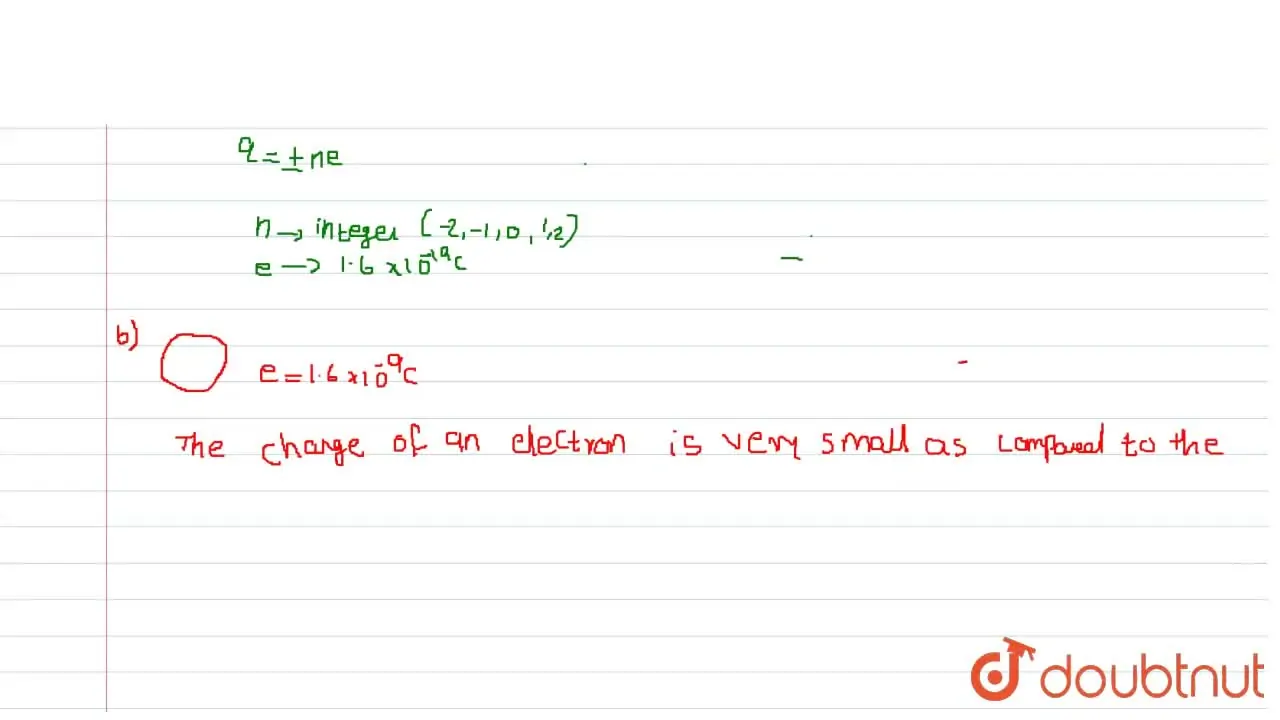 q = ± ne
n → integer [-2, -1, 0, 1, 2]
e → 1.6 × 10⁻¹⁹ C
b)
e = 1.6 × 10⁻⁹ C
The charge of an electron is very small as compared to the
doubtnut